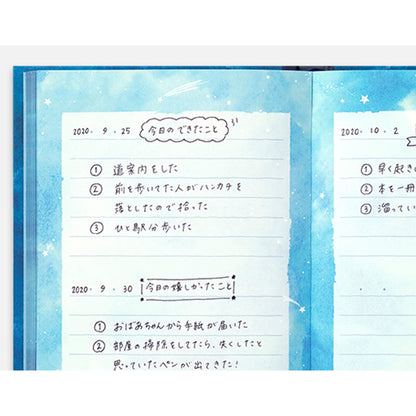 2020. 9. 25 今日のできたこと
① 道案内をした
② 前を歩いてた人がハンカチを
落としたので拾った
③ ひと駅分歩いた
2020. 9. 30 今日の嬉しかったこと
① おばあちゃんから手紙が届いた
② 部屋の掃除をしてたら、失くしたと
思っていたペンが出てきた!
2020. 10. 2
① 早く起き
② 本を一冊
③ 溜ってい